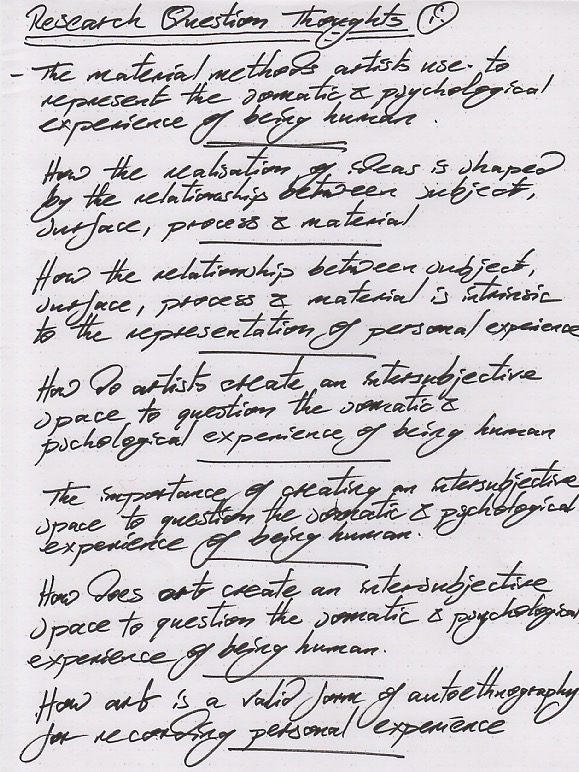 Research Question Thoughts 1.
- The material methods artists use to
represent the somatic & psychological
experience of being human.
How the realisation of ideas is shaped
by the relationship between subject,
surface, process & material
How the relationship between subject,
surface, process & material is intrinsic
to the representation of personal experience
How do artists create an intersubjective
space to question the somatic &
psychological experience of being human
The importance of creating an intersubjective
space to question the somatic & psychological
experience of being human.
How does art create an intersubjective
space to question the somatic & psychological
experience of being human.
How art is a valid form of autoethnography
for recording personal experience